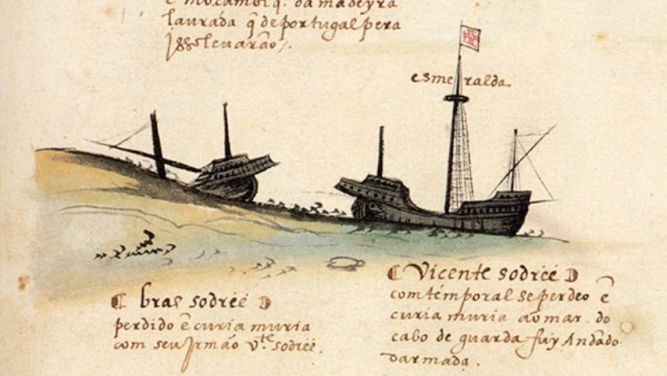 e moçambiq̃. da madeyra
laurada q̃ de portugal pera
jsso levarão.
esmeralda
bras sodréé
perdido ẽ curia muria
com seu Irmão v.te sodréé.
Vicente sodréé
com temporal se perdeo ẽ
curia muria ao mar. do
cabo de guarda fuy Andãdo
darmada.